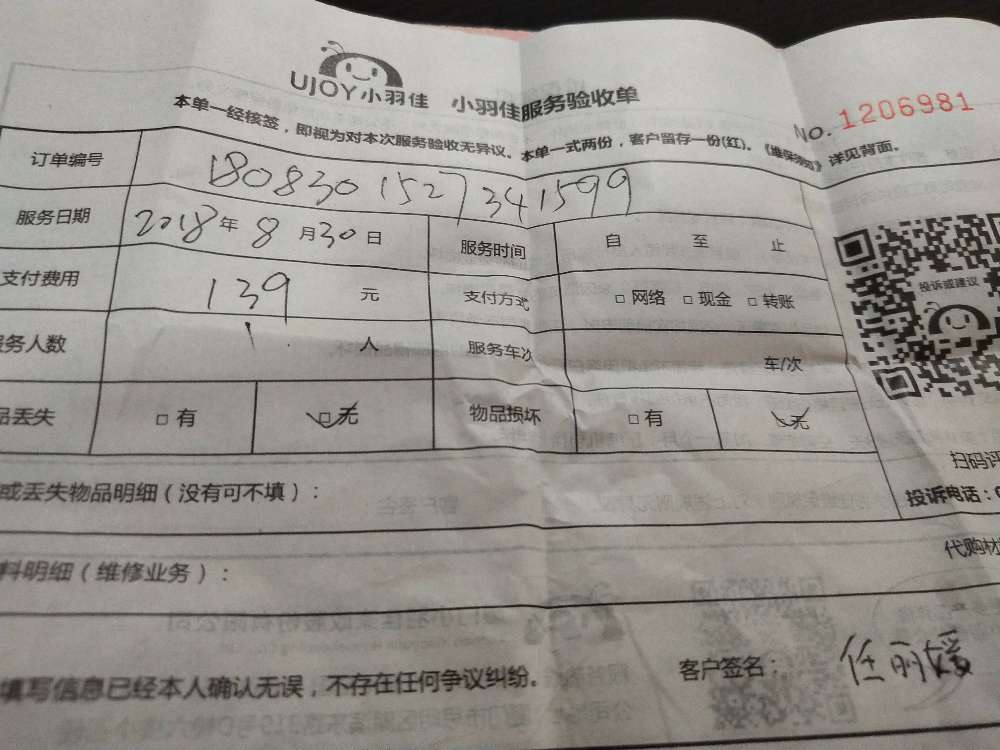 UJOY小羽佳 小羽佳服务验收单
No. 1206981
本单一经核签，即视为对本次服务验收无异议。本单一式两份，客户留存一份(红)。《维保须知》详见背面。
订单编号 180830152734 1599
服务日期 2018年8月30日 服务时间 自 至 止
支付费用 139 元 支付方式 □ 网络 □ 现金 □ 转账
务人数 1 人 服务车次 车/次
品丢失 □ 有 □ 无 物品损坏 □ 有 无
投诉或建议
扫码评
投诉电话：0
或丢失物品明细（没有可不填）：
代购材
料明细（维修业务）：
填写信息已经本人确认无误，不存在任何争议纠纷。 客户签名： 任丽媛